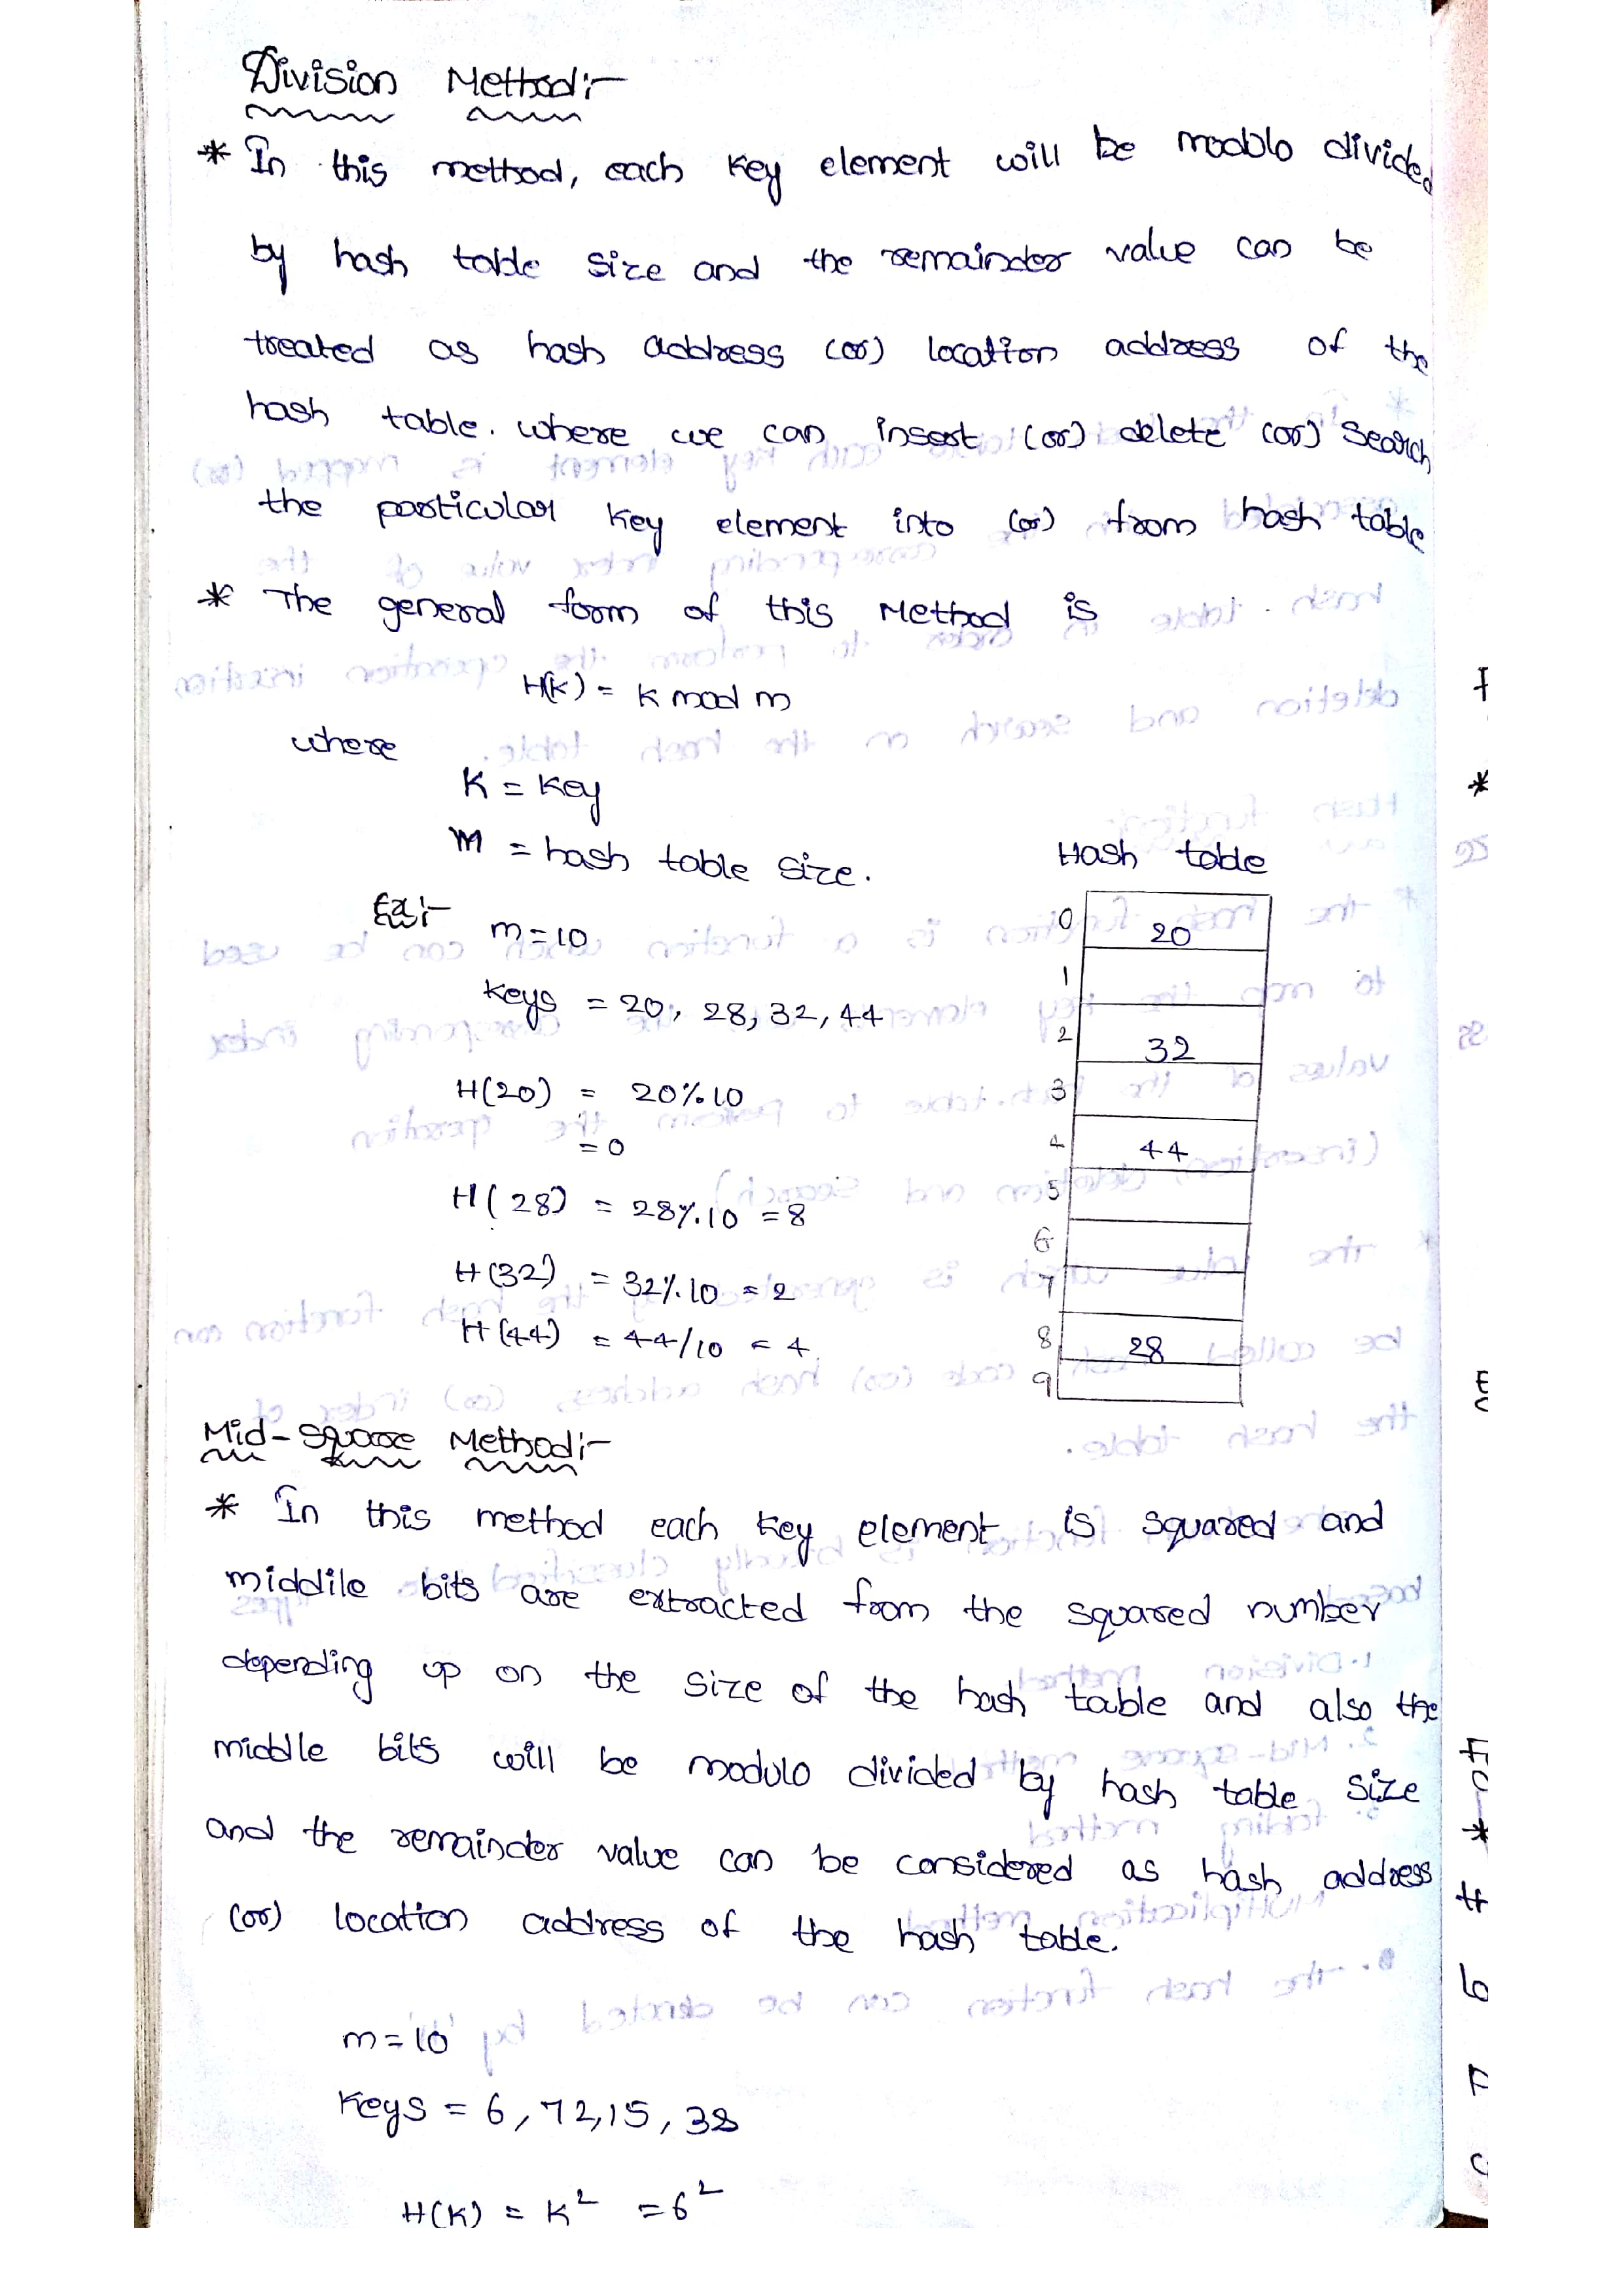 Division Method:-
* In this method, each key element will be modulo divided
by hash table size and the remainder value can be
treated as hash address (or) location address of the
hash table. where we can insert (or) delete (or) Search
the particular key element into (or) from hash table
* The general form of this Method is
H(k) = k mod m
where
K = Key
m = hash table size.
Hash table
Ex:-
m=10
Keys = 20, 28, 32, 44
H(20) = 20%10
= 0
H(28) = 28%10 = 8
H(32) = 32%10 = 2
H(44) = 44/10 = 4.
0 20
1
2 32
3
4 44
5
6
7
8 28
9
Mid-Square Method:-
* In this method each key element is squared and
middile bits are extracted from the squared number
depending up on the size of the hash table and also the
middle bits will be modulo divided by hash table size
and the remainder value can be considered as hash address
(or) location address of the hash table.
m=10
Keys = 6, 72, 15, 38
H(K) = K² = 6²